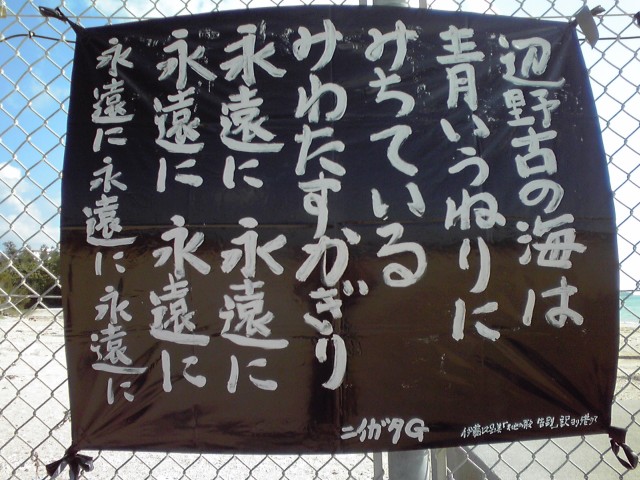 辺野古の海は
青いうねりに
みちている
みわたすかぎり
永遠に 永遠に
永遠に 永遠に
永遠に 永遠に 永遠に
ニイガタG